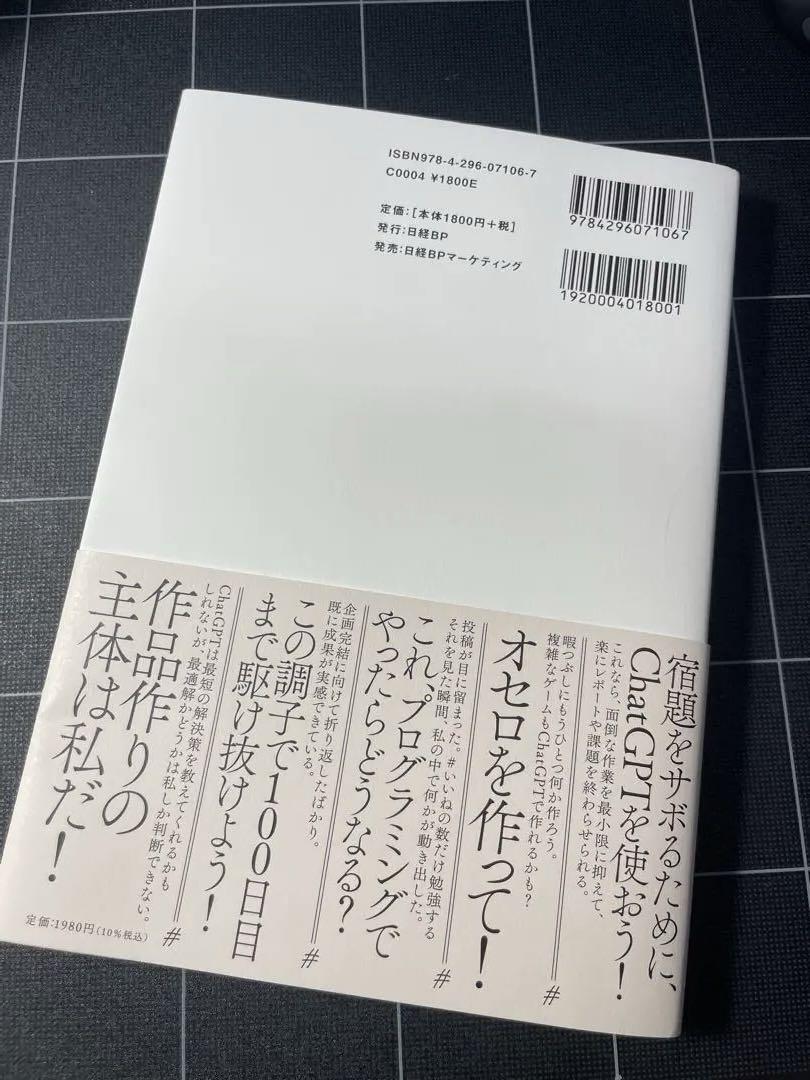 ISBN978-4-296-07106-7
C0004 ¥1800E
定価：[本体1800円＋税]
発行：日経BP
発売：日経BPマーケティング
9784296071067
1920004018001
宿題をサボるために、
ChatGPTを使おう！
これなら、面倒な作業を最小限に抑えて、
楽にレポートや課題を終わらせられる。
#
オセロを作って！
暇つぶしにもうひとつ何か作ろう。
複雑なゲームもChatGPTで作れるかも？
#
これ、プログラミングで
やったらどうなる？
投稿が目に留まった。#いいねの数だけ勉強する
それを見た瞬間、私の中で何かが動き出した。
#
この調子で100日目
まで駆け抜けよう！
企画完結に向けて折り返したばかり。
既に成果が実感できている。
#
作品作りの
主体は私だ！
ChatGPTは最短の解決策を教えてくれるかも
しれないが、最適解かどうかは私しか判断できない。
定価：1980円（10％税込）